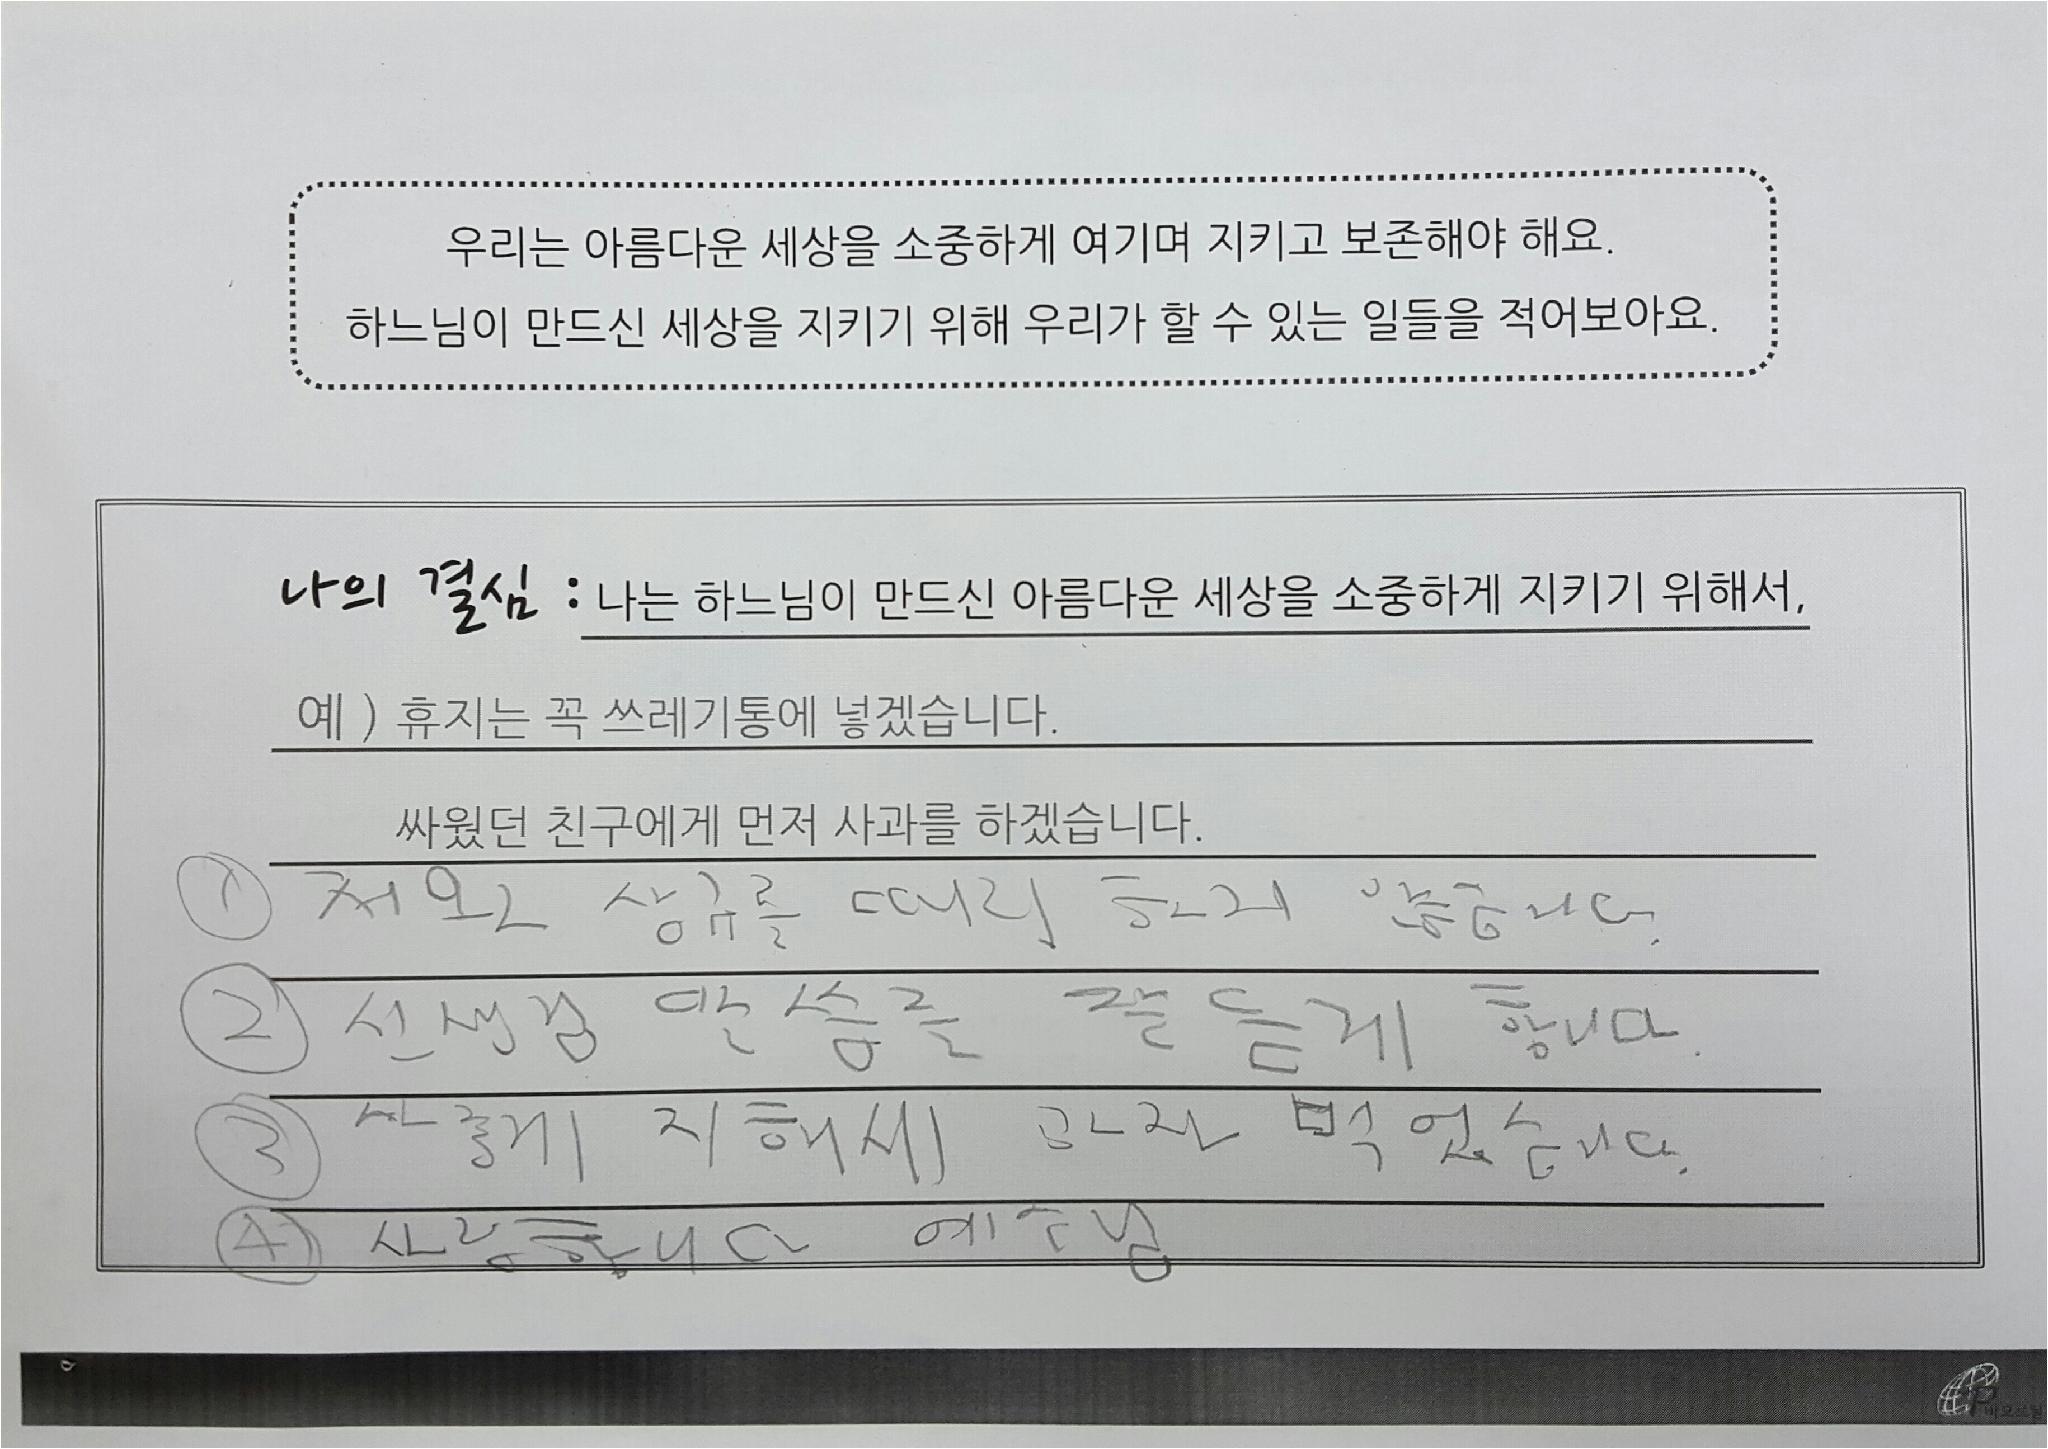 우리는 아름다운 세상을 소중하게 여기며 지키고 보존해야 해요.
하느님이 만드신 세상을 지키기 위해 우리가 할 수 있는 일들을 적어보아요.
나의 결심 : 나는 하느님이 만드신 아름다운 세상을 소중하게 지키기 위해서,
예 ) 휴지는 꼭 쓰레기통에 넣겠습니다.
싸웠던 친구에게 먼저 사과를 하겠습니다.
① 상규를 때리 하지 않습니다.
② 선생님 말씀를 잘 듣게 합니다.
③ 지해세 과자 먹었습니다.
④ 사랑합니다 예수님
바오로딸